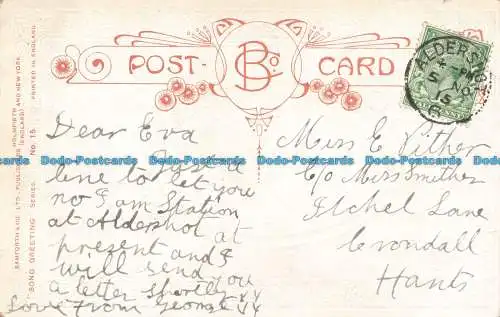 POST CARD
B Co
ALDERSHOT
5 PM
NO
15
BAMFORTH & CO. LTD. PUBLISHERS HOLMFIRTH AND NEW YORK.
(ENGLAND)
PRINTED IN ENGLAND.
SONG GREETING SERIES No. 15.
Dear Eva
Just a
line to let you
no I am Station
at Aldershot at
present and I
will send you
a letter shortly
love from George
Miss E Pither
C/o Miss Smither
Itchel Lane
Crondall
Hants
Dodo-Postcards Dodo-Postcards Dodo-Postcards Dodo-Postcards
Dodo-Postcards Dodo-Postcards Dodo-Postcards Dodo-Postcards